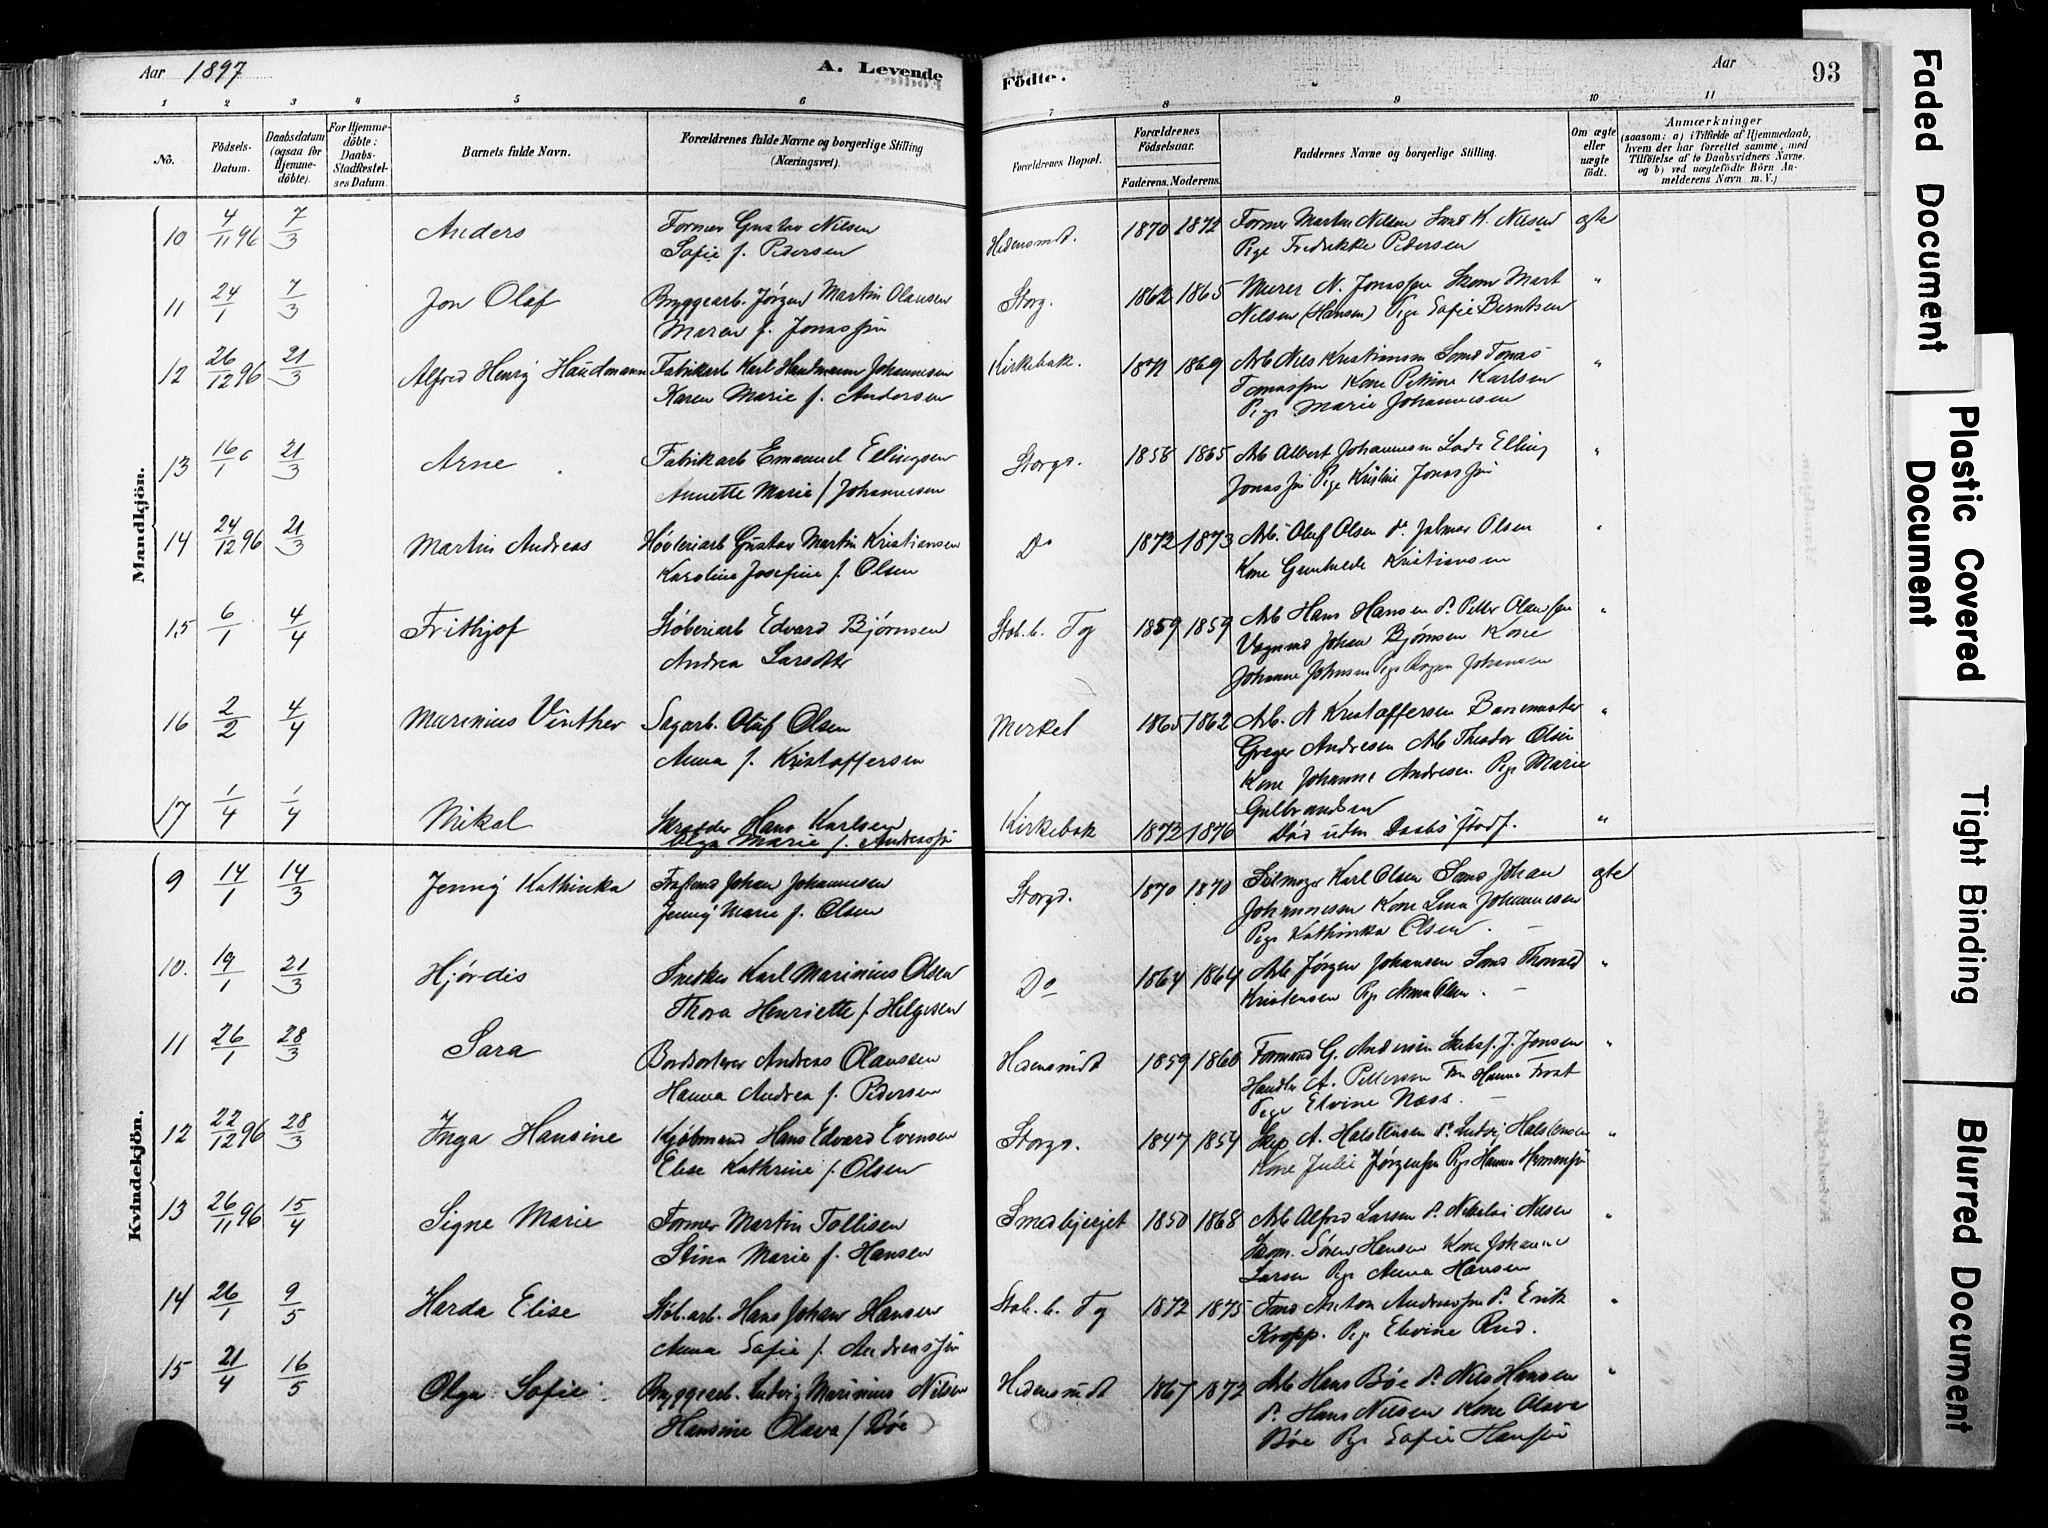 Aar 1897
A. Levende
Fødte.
Aar
93
1 2 3 4 5 6 7 8 9 10 11
No.
Födsels-Datum.
Daabsdatum (ogsaa for Hjemme-döbte).
For Hjemme-döbte: Daabs-Stadfæstel-ses Datum.
Barnets fulde Navn.
Forældrenes fulde Navne og borgerlige Stilling (Næringsvei).
Forældrenes Bopæl.
Forældrenes Födselsaar.
Faderens. Moderens.
Faddernes Navne og borgerlige Stilling.
Om ægte eller uægte födt.
Anmærkninger
(saasom: a) i Tilfælde af Hjemmedaab, hvem der har forrettet samme, med Tilföielse af to Daabsvidners Navne. og b) ved uægtefödte Börn An-melderens Navn m. V.)
Mandkjön.
10 4/11 96 7/3 Anders Former Gustav Nilsen Hedensmdt. 1870 1872 Former Martin Nilsen Smd K. Nilsen ægte
Sofie f. Pedersen Pige Fredrikke Pedersen
11 24/1 7/3 Jon Olaf Bryggearb. Jørgen Martin Olausen Storg. 1862 1865 Murer N. Jonassen Skom Mart "
Maren f. Jonassen Nilsen (Hansen) Pige Sofie Berntsen
12 26/12 96 21/3 Alfred Henrg Haudmann Fabrikarb Karl Haudmann Johannesen Kirkebak. 1871 1869 Arb Nils Kristiansen Smd Tomas "
Karen Marie f. Andersen Tomassen Kone Petrine Karlsen
Pige Marie Johannesen
13 16/1 21/3 Arne Fabrikarb Emanuel Ellingsen Storgd. 1858 1865 Arb Albert Johannesen Lods Elling "
Annette Marie f Johannesen Jonassen Pige Kristine Jonassen
14 24/12 96 21/3 Martin Andreas Høvleriarb Gustav Martin Kristiansen Do 1872 1873 Arb. Oluf Olsen do Jalmar Olsen "
Karoline Josefine f. Olsen Kone Gunhilde Kristiansen
15 6/1 4/4 Frithjof Støberiarb Edvard Bjørnsen Stob. b. Tg 1859 1859 Arb Hans Hansen do Petter Olaussen "
Andrea Larsdtr Vognmd Johan Bjørnsen Kone
Johanne Johnsen Pige Johansen
16 2/2 4/4 Marinius Vinther Sagarb. Oluf Olsen Merket 1865 1862 Arb. A Kristoffersen Banemester "
Anna f. Kristoffersen Greger Andresen Arb Theodor Olsen
Kone Johanne Andresen Pige Marie
Gulbrandsen
17 1/4 1/4 Mikal Skrædder Hans Karlsen Kirkebak 1872 1876 Død uden Daabs stadf. "
Olga Marie f. Andreassen
Kvindekjön.
9 14/1 14/3 Jenny Kathinka Johan Johannesen Storgd. 1870 1870 Seilmager Karl Olsen Smd Johan ægte
Jenny Marie f. Olsen Johannesen Kone Lina Johannesen
Pige Kathinka Olsen.
10. 19/1 21/3 Hjørdis Snedker Karl Marinius Olsen Do 1864 1864 Arb Jørgen Johansen Smd Thorvald "
Thora Henriette f. Helgesen Kristensen Pige Anna Olsen.
11 26/1 28/3 Sara Bordsorterer Andreas Olaussen Hedensmdt 1859 1860 Formand G. Andersen J. Jensen "
Hanna Andrea f. Pedersen Handler A. Pettersen Fru Hanna Frost
Pige Elvine Næss.
12 22/12 96 28/3 Inga Hansine Kjøbmand Hans Edvard Evensen Storgd. 1847 1854 Skp A. Halstensen do Ludvig Halstensen "
Elise Kathrine f. Olsen Kone Julie Jørgensen Pige Hanna
13 26/11 96 15/4 Signe Marie Former Martin Tollisen Smedbjerget 1850 1868 Arb Alfred Larsen do Nikolai Nilsen "
Stina Marie f. Hansen Skom. Søren Hansen Kone Johanne
Larsen Pige Anna Hansen
14 26/1 9/5 Harda Elise Støb.arb. Hans Johan Hansen Stob. b. Tg 1872 1875 Anton Andreassen do Erik "
Anna Sofie f. Andreassen Kropp. Pige Elevine Rud.
15 21/4 16/5 Olga Sofie. Bryggearb. Ludvig Marinius Nilsen Hedensmdt 1867 1872 Arb Hans Bøe do Nils Hansen "
Hansine Olava f Bøe do Hans Nilsen Kone Olava
Bøe Pige Sofie Hansen
Faded Document
Plastic Covered Document
Tight Binding
Blurred Document